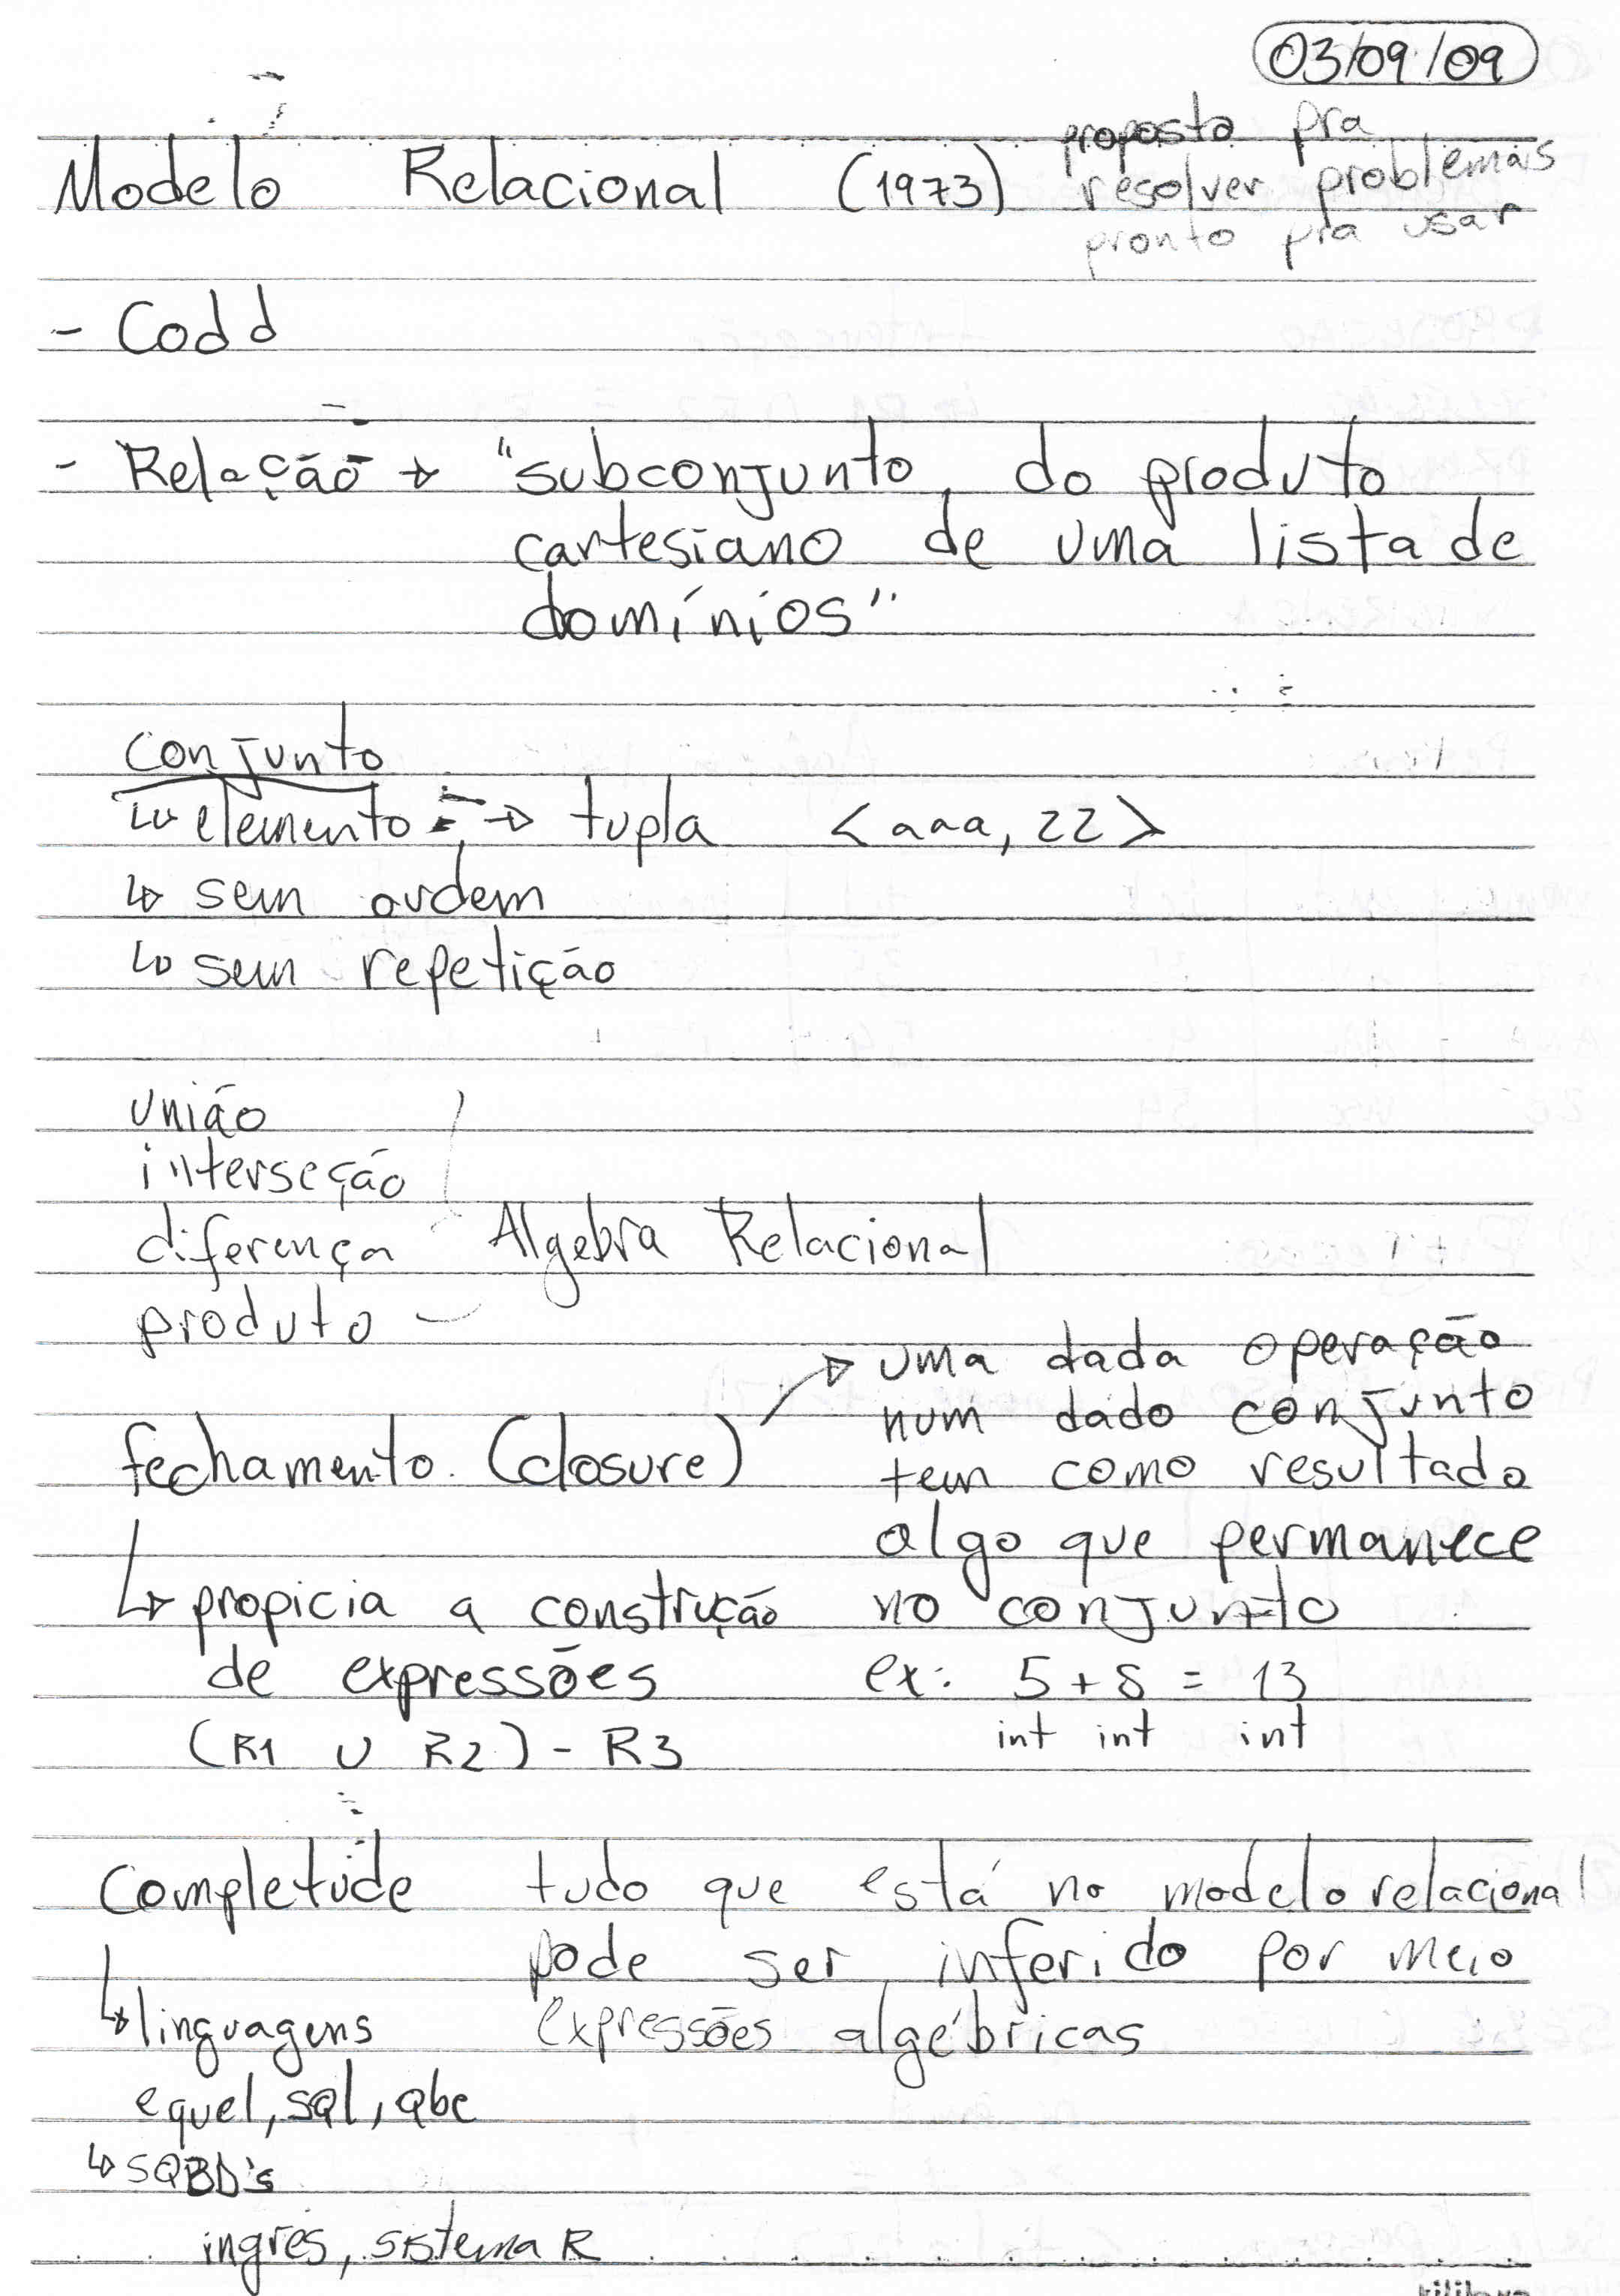 03/09/09
Modelo Relacional (1973)
proposto pra
resolver problemais
pronto pra usar
- Codd
- Relação → "subconjunto do produto
cartesiano de uma lista de
domínios"
conjunto
↳ elemento → tupla <aaa, 22>
↳ sem ordem
↳ sem repetição
união
interseção
diferença
produto
Algebra Relacional
fechamento (closure)
→ uma dada operação
num dado conjunto
tem como resultado
algo que permanece
no conjunto
ex: 5 + 8 = 13
int int int
↳ propicia a construção
de expressões
(R1 ∪ R2) - R3
Completude
tudo que está no modelo relacional
pode ser inferido por meio
expressões algébricas
↳ linguagens
equel, sql, qbe
↳ SGBD's
ingres, sistema R